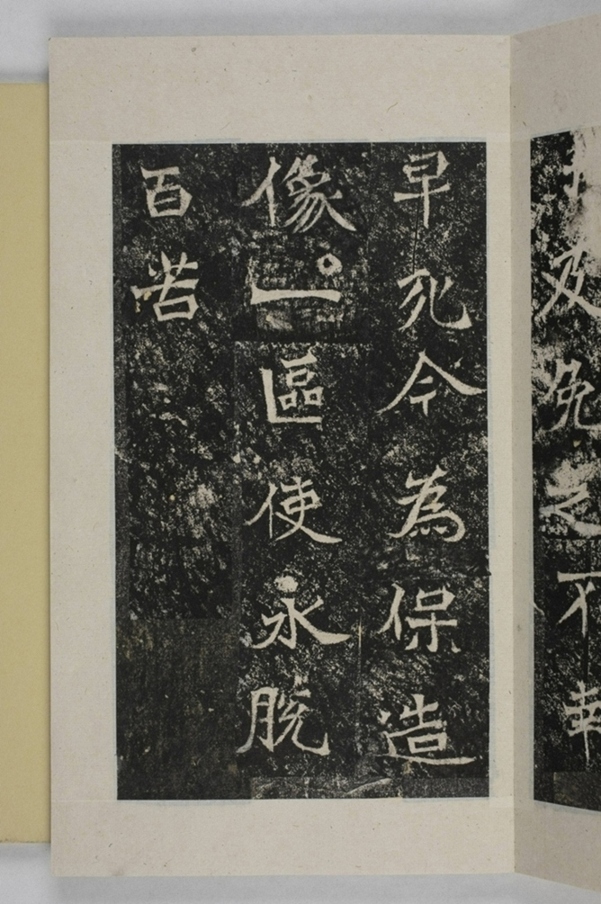 及免之不幸
早死今為保造
像一區使永脫
百苦